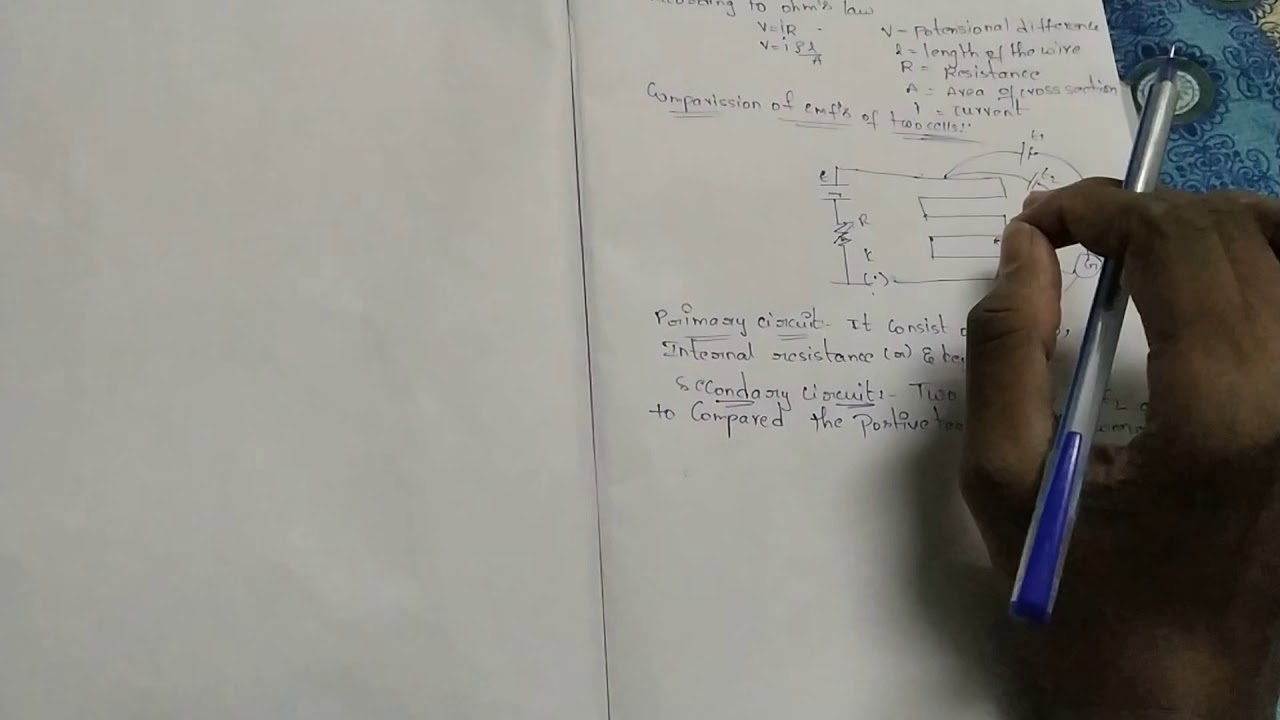 to ohm's law
V=iR
V = i ρl/A
V - potensional difference
l = length of the wire
R = Resistance
A = Area of cross section
i = current
Comparission of emf's of two cells:-
E1
E2
e
R
K
(.)
G
Primary circuit- It consist
Internal resistance (r) &
Secondary circuit:- Two
to Compared the Portive